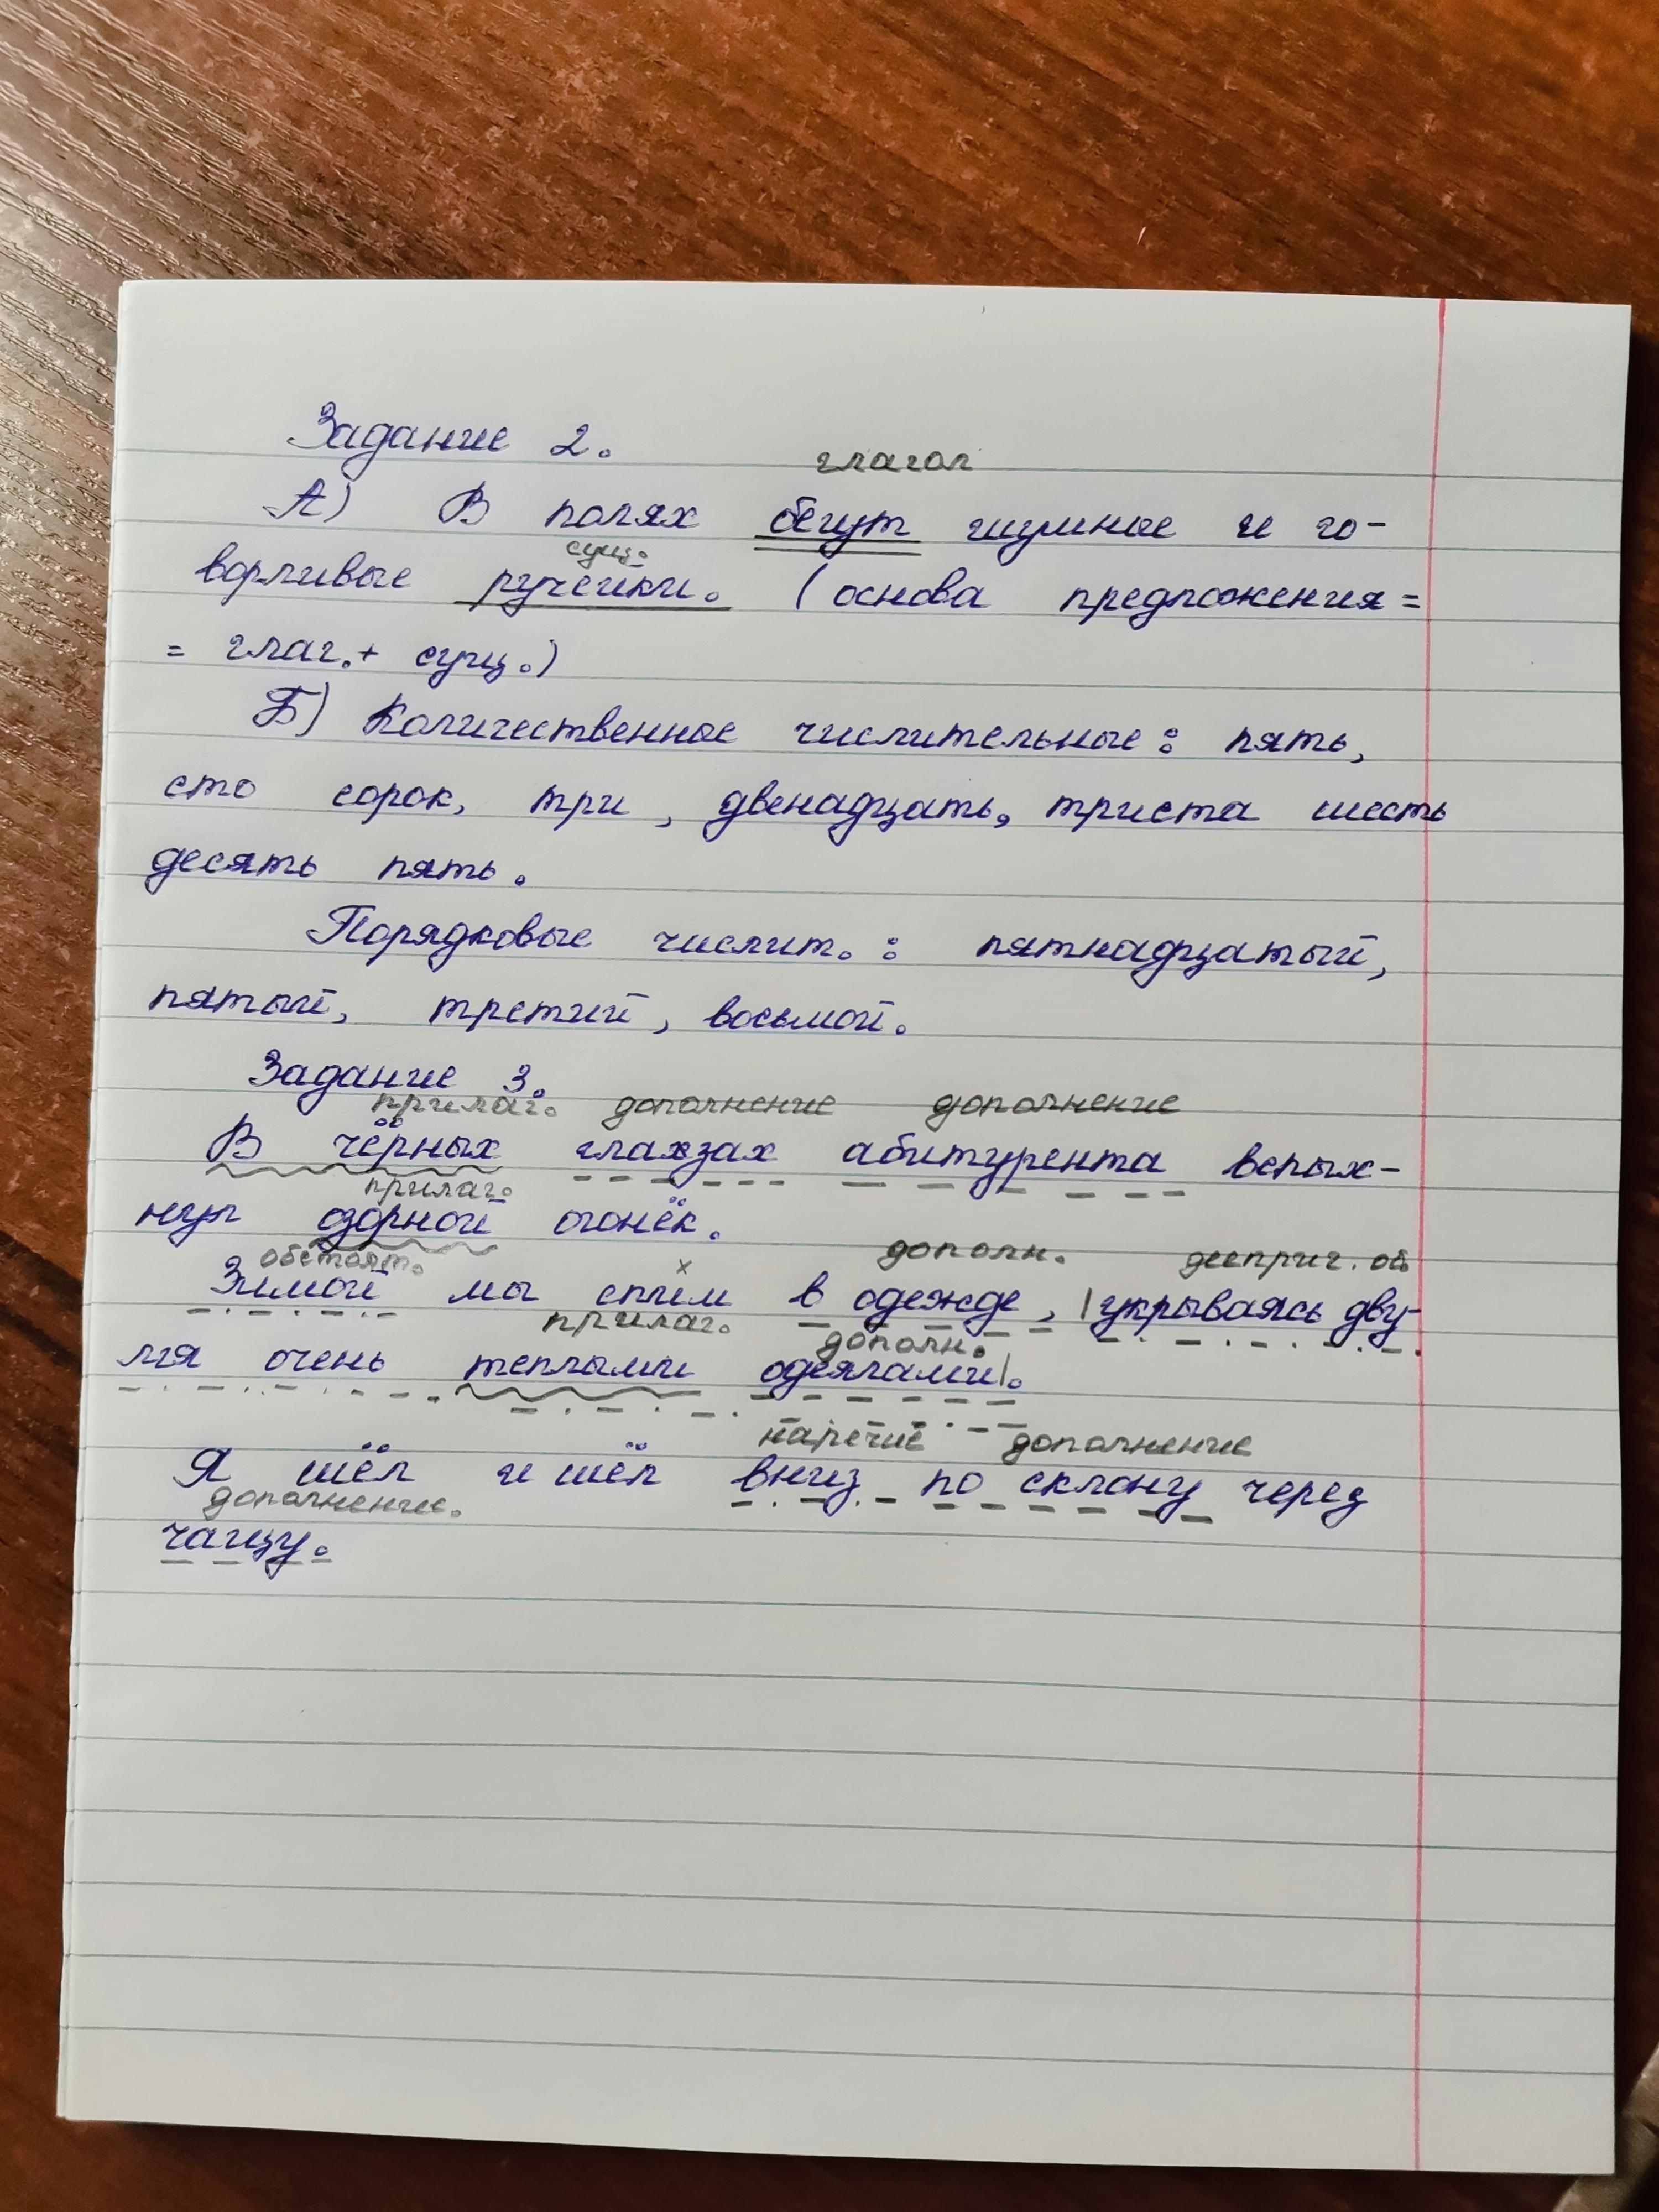 Задание 2.
глагол
А) В полях бегут шумные и го-
сущ.
ворливые ручейки. (основа предложения =
= глаг. + сущ.)
Б) Количественные числительные: пять,
сто сорок, три, двенадцать, триста шесть
десять пять.
Порядковые числит.: пятнадцатый,
пятый, третий, восьмой.
Задание 3.
прилаг. дополнение дополнение
В чёрных глазах абитурента вспых-
прилаг.
нул озорной огонёк.
обстоят. х дополн. дееприч. об.
Зимой мы спим в одежде, |укрываясь дву-
прилаг. дополн.
мя очень теплыми одеялами|.
наречие дополнение
Я шёл и шёл вниз по склону через
дополнение.
чащу.